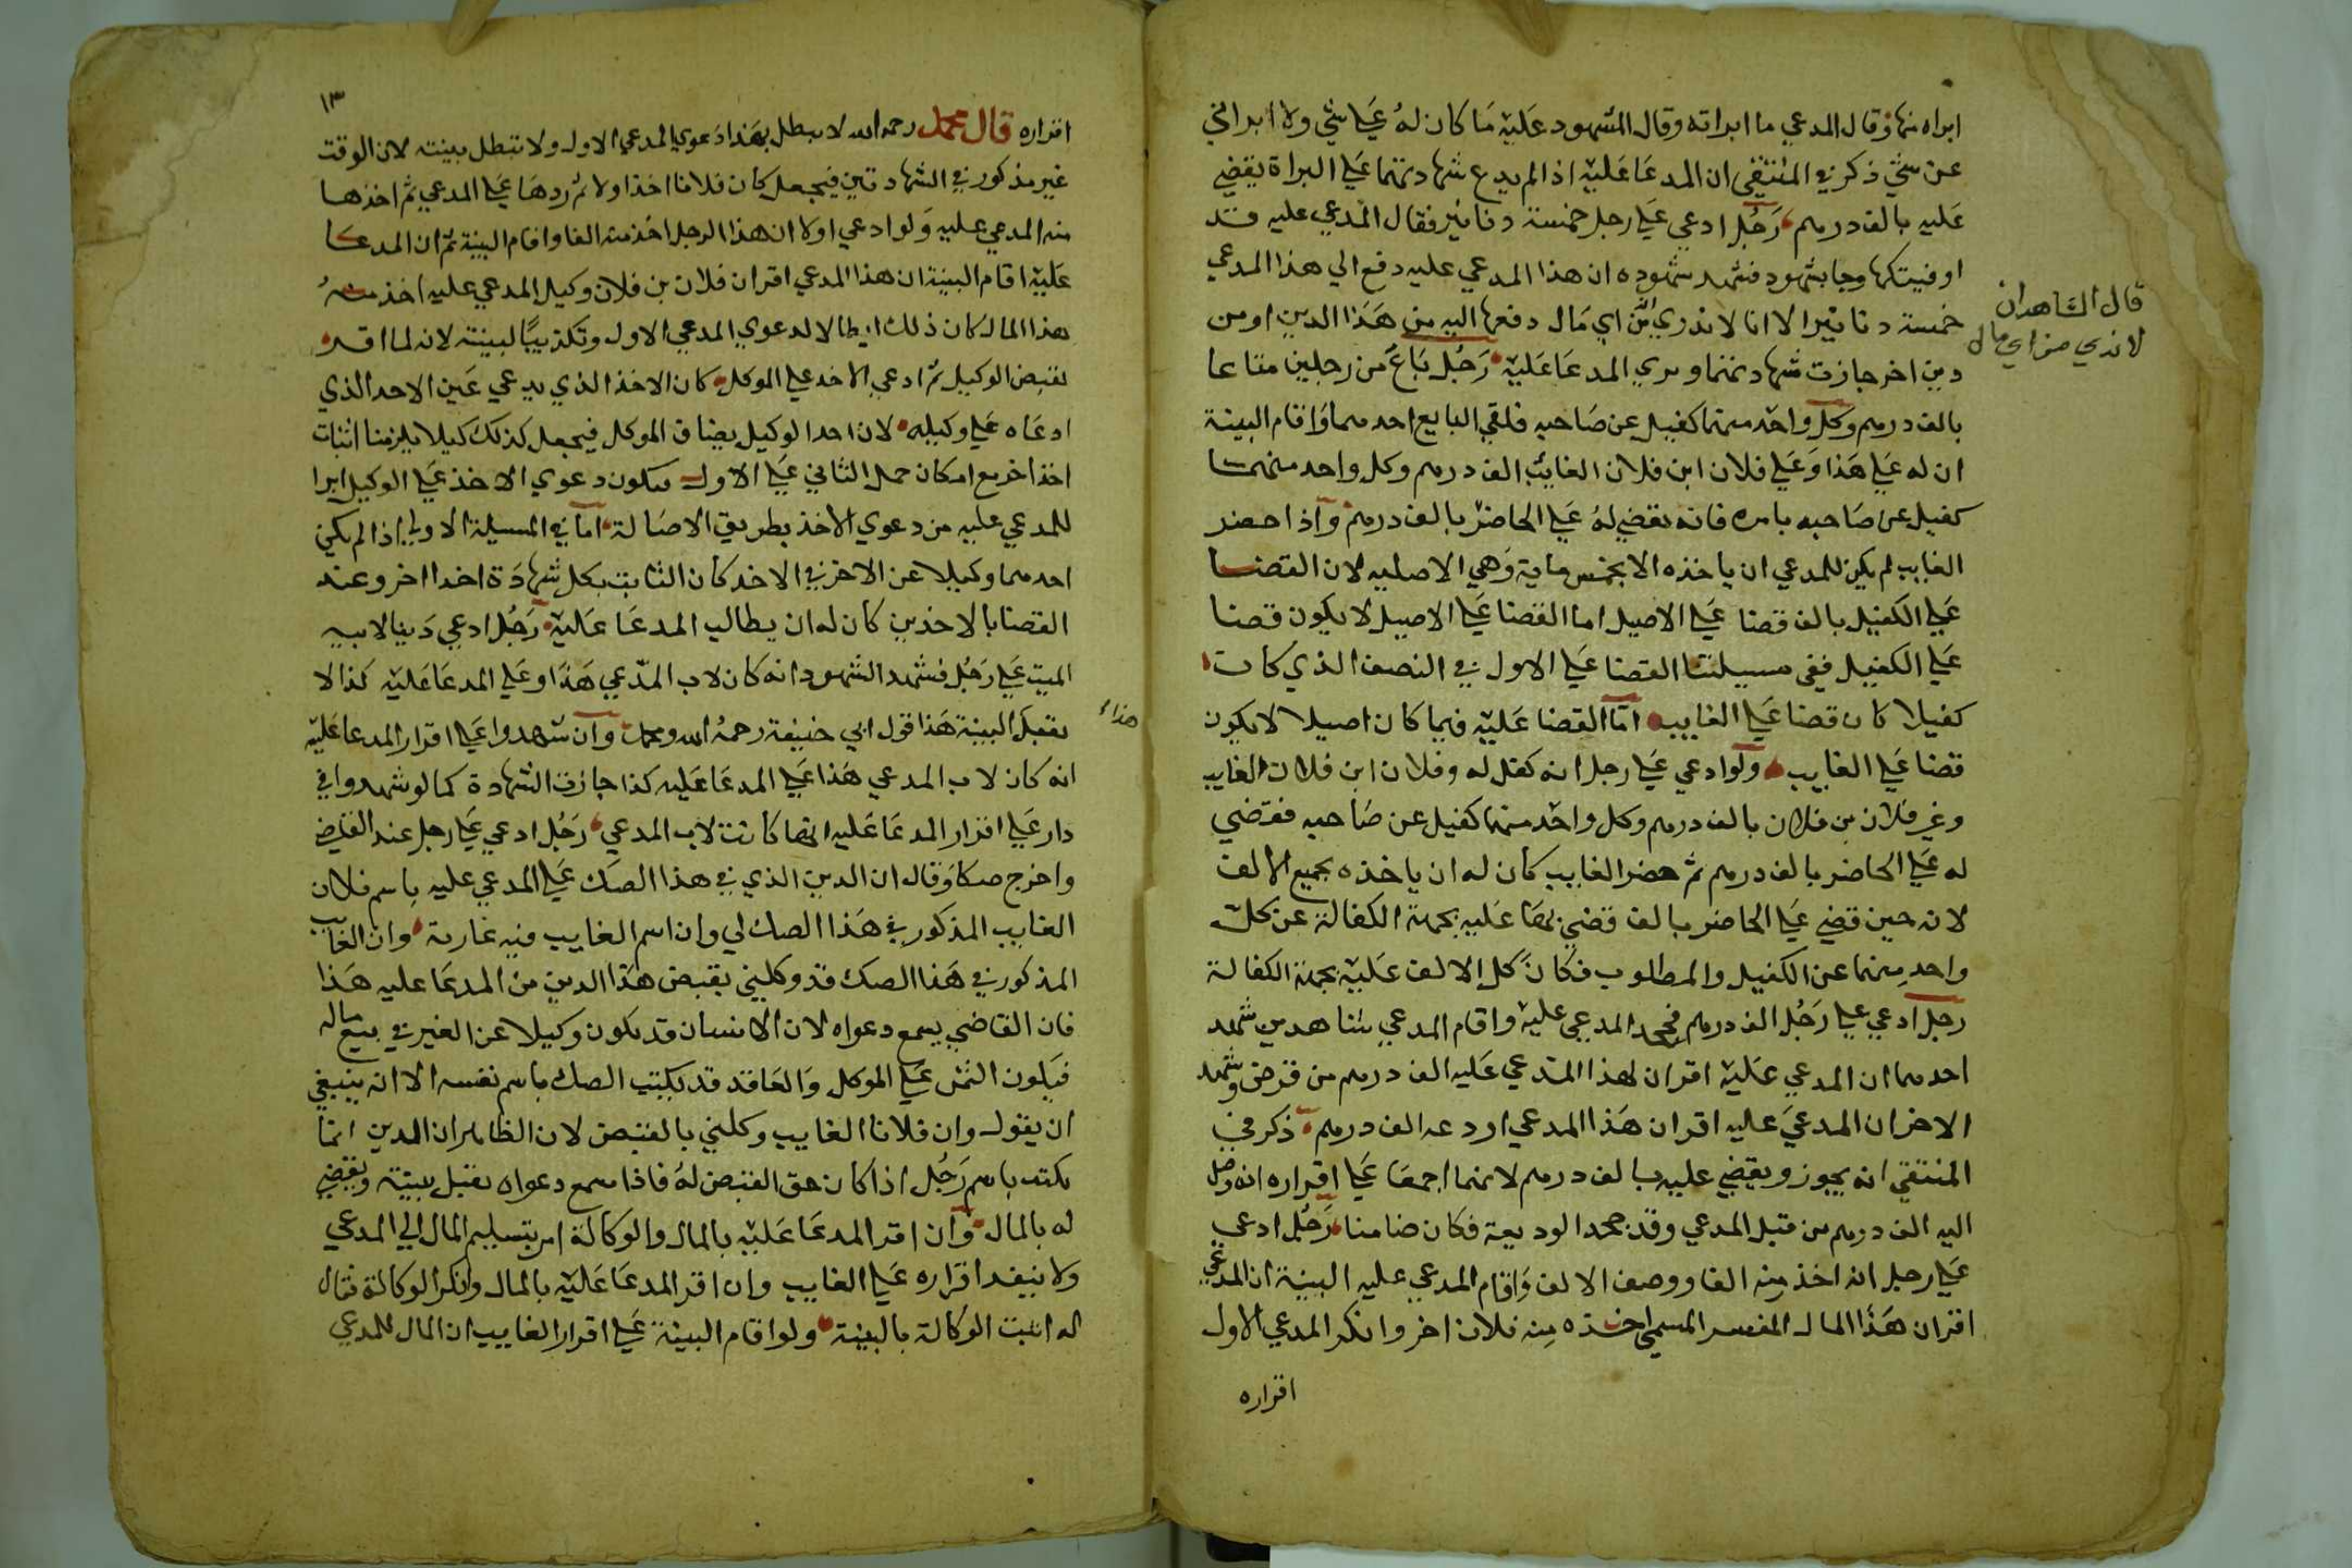 ابراه منها وقال المدعي ما ابراته وقال المشهود عليه ما كان له علي شي ولا ابراني
عن شي ذكر في المنتقى ان المدعا عليه اذا لم يدع شهادتهما علي البراة يقضي
عليه بالف درهم رجل ادعي علي رجل خمسة دنانير فقال المدعي عليه قد
اوفيتكها وجا بشهود فشهد شهوده ان هذا المدعي عليه دفع الي هذا المدعي
خمسة دنانير الا انا لا ندري من اي مال دفعها اليه من هذا الدين او من
قال الشاهدان
لا ندري من اي مال
دين اخر جازت شهادتهما وبري المدعا عليه رجل باع من رجلين متاعا
بالف درهم وكل واحد منهما كفيل عن صاحبه فلقي البايع احدهما واقام البينة
ان له علي هذا وعلي فلان ابن فلان الغايب الف درهم وكل واحد منهما
كفيل عن صاحبه بامره فانه يقضي له علي الحاضر بالف درهم واذا حضر
الغايب لم يكن للمدعي ان ياخذه الا بخمس ماية وهي الاصليه لان القضا
علي الكفيل بالف قضا علي الاصيل اما القضا علي الاصيل لا يكون قضا
علي الكفيل ففي مسيلتنا القضا علي الاول في النصف الذي كان
كفيلا كان قضا علي الغايب اما القضا عليه فيما كان اصيلا لا يكون
قضا علي الغايب ولو ادعي علي رجل انه كفل له وفلان ابن فلان الغايب
وعن فلان بن فلان بالف درهم وكل واحد منهما كفيل عن صاحبه فقضي
له علي الحاضر بالف درهم ثم حضر الغايب كان له ان ياخذه بجميع الالف
لانه حين قضي علي الحاضر بالف قضي بها عليه بجهة الكفالة عن كل
واحد منهما عن الكفيل والمطلوب فكان كل الالف عليه بجهة الكفالة
رجل ادعي علي رجل الف درهم فجحد المدعي عليه واقام المدعي شاهدين شهد
احدهما ان المدعي عليه اقر ان لهذا المدعي عليه الف درهم من قرض وشهد
الاخر ان المدعي عليه اقر ان هذا المدعي اودعه الف درهم ذكر في
المنتقي انه يجوز ويقضي عليه بالف درهم لانهما اجمعا علي اقراره انه وصل
اليه الف درهم من قبل المدعي وقد جحد الوديعة فكان ضامنا رجل ادعي
علي رجل انه اخذ منه الفا ووصف الالف واقام المدعي عليه البينة ان المدعي
اقر ان هذا المال المفسر المسمي اخذه منه فلان اخر وانكر المدعي الاول
اقراره
١٣
اقراره قال محمد رحمه الله لا يبطل بهذا دعوي المدعي الاول ولا تبطل بينته لان الوقت
غير مذكور في الشهادتين فيجعل كان فلانا اخذ اولا ثم ردها علي المدعي ثم اخذها
منه المدعي عليه ولو ادعي اولا ان هذا الرجل اخذ منه الفا واقام البينة ثم ان المدعا
عليه اقام البينة ان هذا المدعي اقر ان فلان بن فلان وكيل المدعي عليه اخذ منه
هذا المال كان ذلك ابطالا لدعوي المدعي الاول وتكذيبا لبينته لانه لما اقر
بقبض الوكيل ثم ادعي الاخذ علي الموكل كان الاخذ الذي يدعي عين الاخذ الذي
ادعاه علي وكيله لان اخذ الوكيل يضاف الموكل فيجعل كذلك كيلا يلزمنا اثبات
اخذ اخر مع امكان حمل الثاني علي الاول فيكون دعوي الاخذ علي الوكيل ابرا
للمدعي عليه من دعوي الاخذ بطريق الاصالة اما في المسيلة الاولي اذا لم يكن
احدهما وكيلا عن الاخر في الاخذ كان الثابت بكل شهادة اخذا اخر وعند
القضا بالاخذين كان له ان يطالب المدعا عليه رجل ادعي دينا لابيه
الميت علي رجل فشهد الشهود انه كان لاب المدعي هذا وعلي المدعا عليه كذا لا
هذا
يقبل البينة هذا قول ابي حنيفة رحمه الله ومحمد وان شهدوا علي اقرار المدعا عليه
انه كان لاب المدعي هذا علي المدعا عليه كذا جازت الشهادة كما لو شهدوا في
دار علي اقرار المدعا عليه انها كانت لاب المدعي رجل ادعي علي رجل عند القاضي
واخرج صكا وقال ان الدين الذي في هذا الصك علي المدعي عليه باسم فلان
الغايب المذكور في هذا الصك لي وان اسم الغايب فيه عارية وان الغايب
المذكور في هذا الصك قد وكلني بقبض هذا الدين من المدعا عليه هذا
فان القاضي يسمع دعواه لان الانسان قد يكون وكيلا عن الغير في بيع ماله
فيكون الثمن علي الموكل والعاقد قد يكتب الصك باسم نفسه الا انه ينبغي
ان يقول وان فلانا الغايب وكلني بالقبض لان الظاهر ان الدين انما
يكتب باسم رجل اذا كان حق القبض له فاذا سمع دعواه يقبل بينته ويقضي
له بالمال وان اقر المدعا عليه بالمال والوكالة امر بتسليم المال الي المدعي
ولا ينفذ اقراره علي الغايب وان اقر المدعا عليه بالمال وانكر الوكالة فقال
له اثبت الوكالة بالبينة ولو اقام البينة علي اقرار الغايب ان المال للمدعي